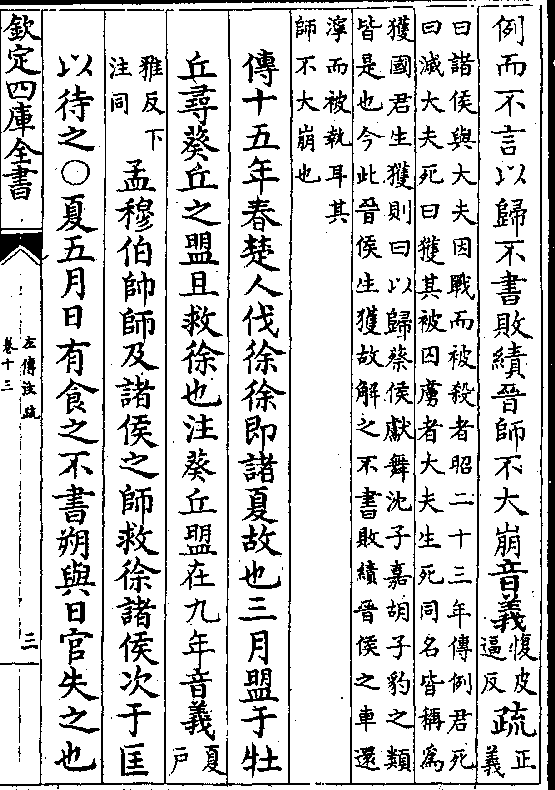 例而不言以歸不書敗績晉師不大崩音義愎皮逼反疏正義
曰諸侯與大夫因戰而被殺者昭二十三年傳例君死
曰滅大夫死曰獲其被囚虜者大夫生死同名皆稱為
獲國君生獲則曰以歸蔡侯獻舞沈子嘉胡子豹之類
皆是也今此晉侯生獲故解之不書敗績晉侯之車還
濘而被執耳其
師不大崩也
傳十五年春楚人伐徐徐即諸夏故也三月盟于牡
丘尋葵丘之盟且救徐也注葵丘盟在九年音義夏戶
雅反下注同孟穆伯帥師及諸侯之師救徐諸侯次于匡
以待之○夏五月日有食之不書朔與日官失之也
欽定四庫全書
左傳注疏
卷十三
三